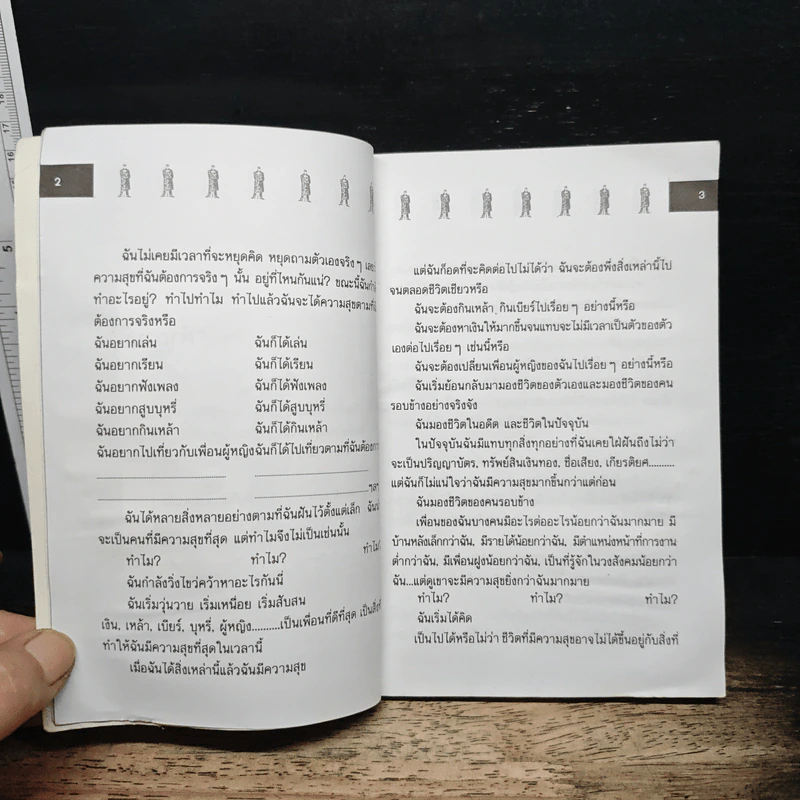 2
ฉันไม่เคยมีเวลาที่จะหยุดคิด หยุดถามตัวเองจริงๆ
ความสุขที่ฉันต้องการจริงๆ นั้น อยู่ที่ไหนกันแน่? ขณะนี้ฉันกำลัง
ทำอะไรอยู่? ทำไปทำไม ทำไปแล้วฉันจะได้ความสุขตามที่
ต้องการจริงหรือ
ฉันอยากเล่น ฉันก็ได้เล่น
ฉันอยากเรียน ฉันก็ได้เรียน
ฉันอยากฟังเพลง ฉันก็ได้ฟังเพลง
ฉันอยากสูบบุหรี่ ฉันก็ได้สูบบุหรี่
ฉันอยากกินเหล้า ฉันก็ได้กินเหล้า
ฉันอยากไปเที่ยวกับเพื่อนผู้หญิง ฉันก็ได้ไปเที่ยวตามที่ฉันต้องการ
ฯลฯ
ฉันได้หลายสิ่งหลายอย่างตามที่ฉันฝันไว้ตั้งแต่เล็ก
จะเป็นคนที่มีความสุขที่สุด แต่ทำไมจึงไม่เป็นเช่นนั้น
ทำไม? ทำไม? ทำไม?
ฉันกำลังวิ่งไขว่คว้าหาอะไรกันนี่
ฉันเริ่มวุ่นวาย เริ่มเหนื่อย เริ่มสับสน
เงิน, เหล้า, เบียร์, บุหรี่, ผู้หญิง..........เป็นเพื่อนที่ดีที่สุด เป็นสิ่งที่
ทำให้ฉันมีความสุขที่สุดในเวลานี้
เมื่อฉันได้สิ่งเหล่านี้แล้วฉันมีความสุข
3
แต่ฉันก็อดที่จะคิดต่อไปไม่ได้ว่า ฉันจะต้องพึ่งสิ่งเหล่านี้ไป
จนตลอดชีวิตเชียวหรือ
ฉันจะต้องกินเหล้า, กินเบียร์ไปเรื่อยๆ อย่างนี้หรือ
ฉันจะต้องหาเงินให้มากขึ้นจนแทบจะไม่มีเวลาเป็นตัวของตัว
เองต่อไปเรื่อยๆ เช่นนี้หรือ
ฉันจะต้องเปลี่ยนเพื่อนผู้หญิงของฉันไปเรื่อยๆ อย่างนี้หรือ
ฉันเริ่มย้อนกลับมามองชีวิตของตัวเองและมองชีวิตของคน
รอบข้างอย่างจริงจัง
ฉันมองชีวิตในอดีต และชีวิตในปัจจุบัน
ในปัจจุบันฉันมีแทบทุกสิ่งทุกอย่างที่ฉันเคยใฝ่ฝันถึงไม่ว่า
จะเป็นปริญญาบัตร, ทรัพย์สินเงินทอง, ชื่อเสียง, เกียรติยศ..........
แต่ฉันก็ไม่แน่ใจว่าฉันมีความสุขมากขึ้นกว่าแต่ก่อน
ฉันมองชีวิตของคนรอบข้าง
เพื่อนของฉันบางคนมีอะไรต่ออะไรน้อยกว่าฉันมากมาย มี
บ้านหลังเล็กกว่าฉัน, มีรายได้น้อยกว่าฉัน, มีตำแหน่งหน้าที่การงาน
ต่ำกว่าฉัน, มีเพื่อนฝูงน้อยกว่าฉัน, เป็นที่รู้จักในวงสังคมน้อยกว่า
ฉัน...แต่ดูเขาจะมีความสุขยิ่งกว่าฉันมากมาย
ทำไม? ทำไม? ทำไม?
ฉันเริ่มได้คิด
เป็นไปได้หรือไม่ว่า ชีวิตที่มีความสุขอาจไม่ได้ขึ้นอยู่กับสิ่งที่
18
17
16
5